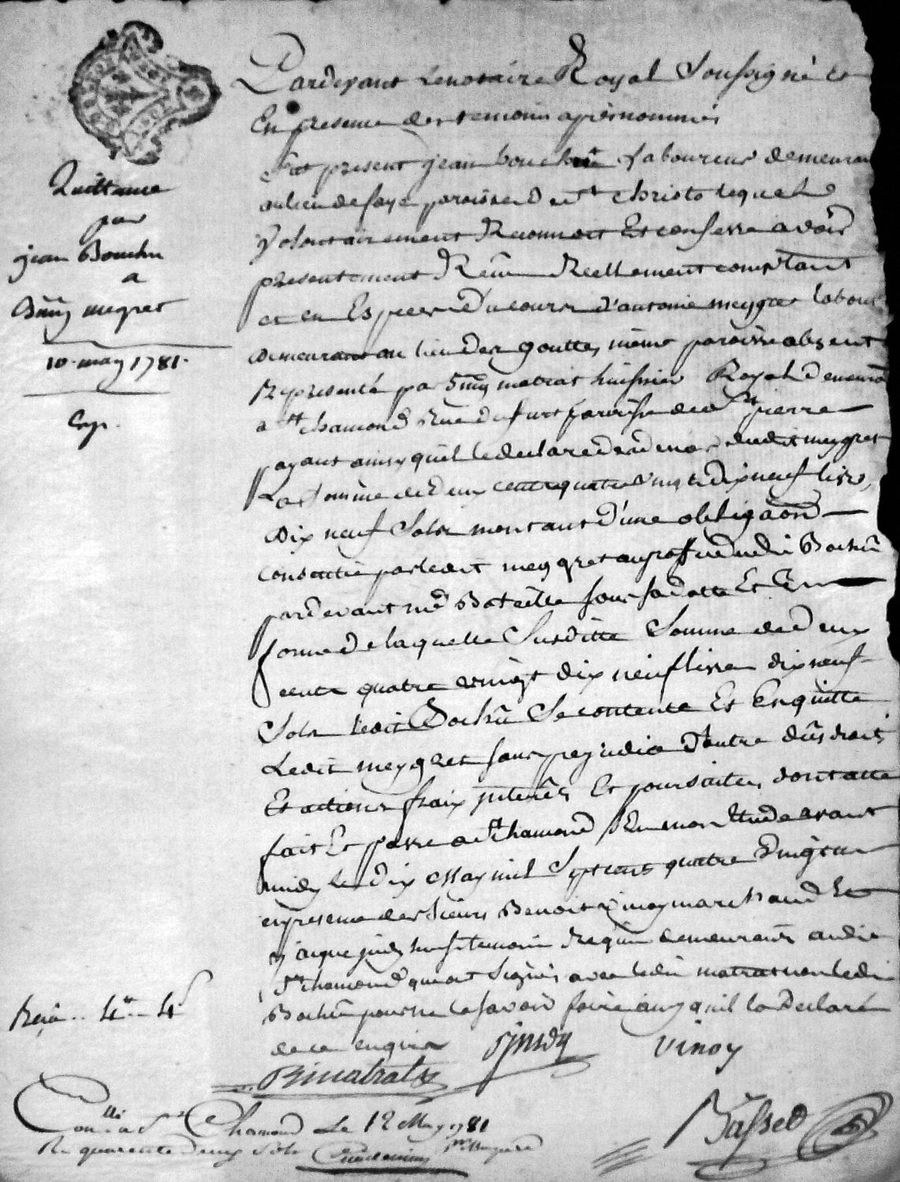 Quittance
par
jean Bouchu
a
Bmy megret
10. may 1781.
Exp.
Pardevant Lenotaire Royal Soussigné et
En presence des temoins apresnommés
fut present jean bouchu laboureur demeurant
au lieu de faye paroisse de st Christo lequel
Volontairement Reconnoit Et confesse avoir
presentement Recu Reellement comptant
et en Especes Du cours d'antoine meygret labour
demeurant au lieu des gouttes même paroisse absent
Representé pa Bmy matrat huissier Royal demeurant
a st chamond Rue du furt paroisse de st pierre
payant ainsy quil le declare des deniers dudit meygret
La Somme de deux cent quatre vingt dix neuf livres
dix neuf Sols montant d'une obligaon
consentie par ledit meygret au proffit dudit Bochu
pardevant me Bataille sous sa datte Et En
forme de laquelle Susditte Somme de deux
cent quatre vingt dix neuf livres dix neuf
Sols ledit Bochu Se contente Et En quitte
Ledit meygret sans prejudice d'autre dûs droits
Et actions fraix interêts Et poursuites dont acte
fait Et passé a st chamond En mon Etude avant
midy le dix May mil Sept cent quatre vingt un
en presence de sieurs Benoit vinoy marchand Et
temoins Requis demeurants audit
st chamond qui ont Signés avec ledit matrat non ledit
Bochu pour ne le savoir faire ainsy quil la declaré
de ce enquis
Reçu .. 4# .. 4s
Bmatrat
vinoy
Bassed
Con. a st Chamond Le 12 May 1781
R. quarente deux Sols